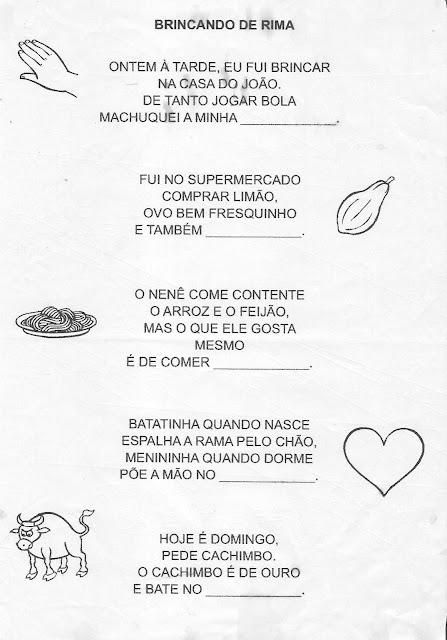 BRINCANDO DE RIMA
ONTEM À TARDE, EU FUI BRINCAR
NA CASA DO JOÃO.
DE TANTO JOGAR BOLA
MACHUQUEI A MINHA ____________.
FUI NO SUPERMERCADO
COMPRAR LIMÃO,
OVO BEM FRESQUINHO
E TAMBÉM ____________.
O NENÊ COME CONTENTE
O ARROZ E O FEIJÃO,
MAS O QUE ELE GOSTA
MESMO
É DE COMER ____________.
BATATINHA QUANDO NASCE
ESPALHA A RAMA PELO CHÃO,
MENININHA QUANDO DORME
PÕE A MÃO NO ____________.
HOJE É DOMINGO,
PEDE CACHIMBO.
O CACHIMBO É DE OURO
E BATE NO ____________.